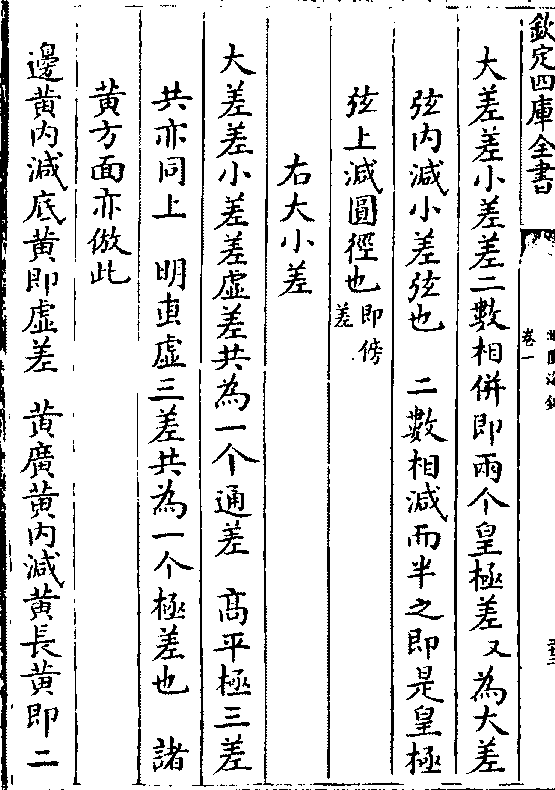 欽定四庫全書
卷一
大差差小差差二數相併即兩个皇極差又為大差
弦内減小差弦也 二數相減而半之即是皇極
弦上減圓徑也即傍差
右大小差
大差差小差差虛差共為一个通差 髙平極三差
共亦同上 明叀虛三差共為一个極差也 諸
黄方面亦倣此
邊黄内減底黄即虛差 黄廣黄内減黄長黄即二